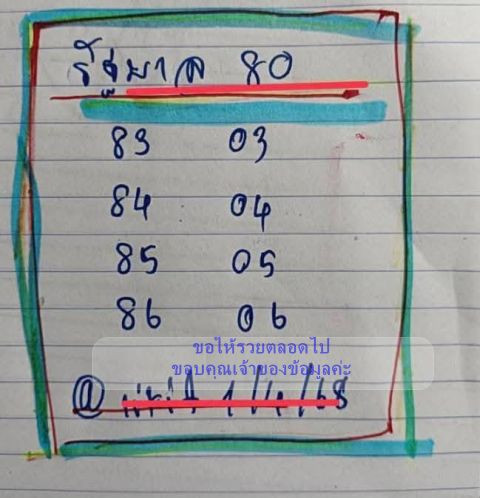 รัฐบาล 80
83 03
84 04
85 05
86 06
ขอให้รวยตลอดไป
ขอบคุณเจ้าของข้อมูลค่ะ
@ 1/4/68